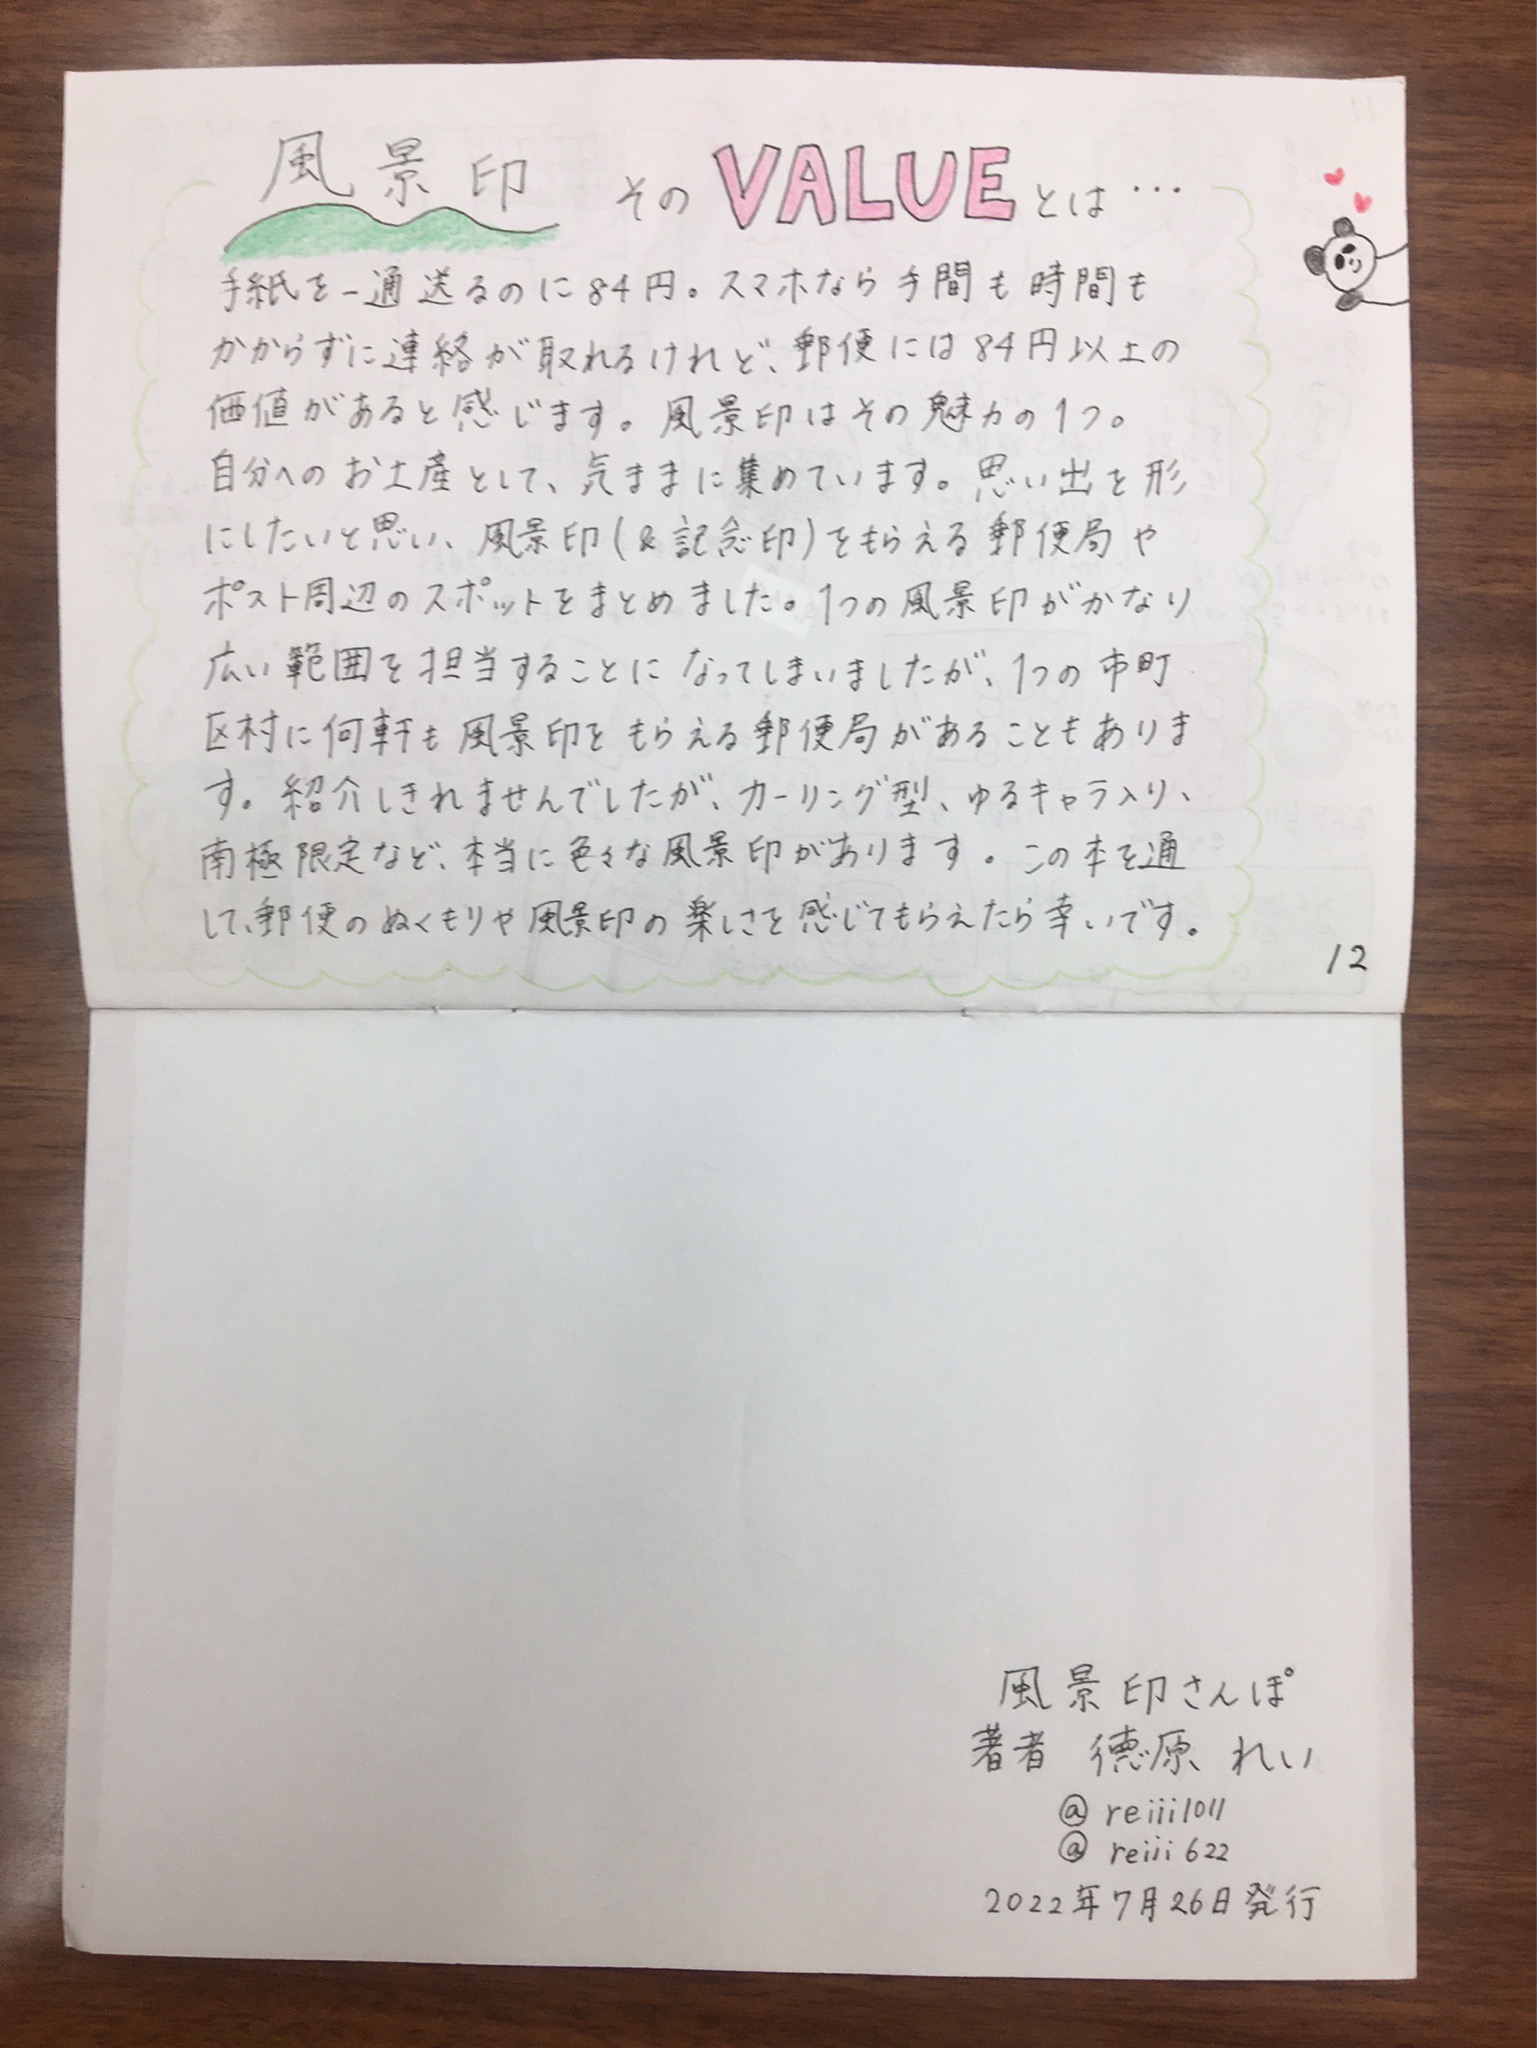 風景印 そのVALUEとは…
手紙を一通送るのに84円。スマホなら手間も時間も
かからずに連絡が取れるけれど、郵便には84円以上の
価値があると感じます。風景印はその魅力の1つ。
自分へのお土産として、気ままに集めています。思い出を形
にしたいと思い、風景印(&記念印)をもらえる郵便局や
ポスト周辺のスポットをまとめました。1つの風景印がかなり
広い範囲を担当することになってしまいましたが、1つの市町
区村に何軒も風景印をもらえる郵便局があることもありま
す。紹介しきれませんでしたが、カーリング型、ゆるキャラ入り、
南極限定など、本当に色々な風景印があります。この本を通
して、郵便のぬくもりや風景印の楽しさを感じてもらえたら幸いです。
12
風景印さんぽ
著者 徳原 れい
@reiii1011
@reiii622
2022年7月26日発行